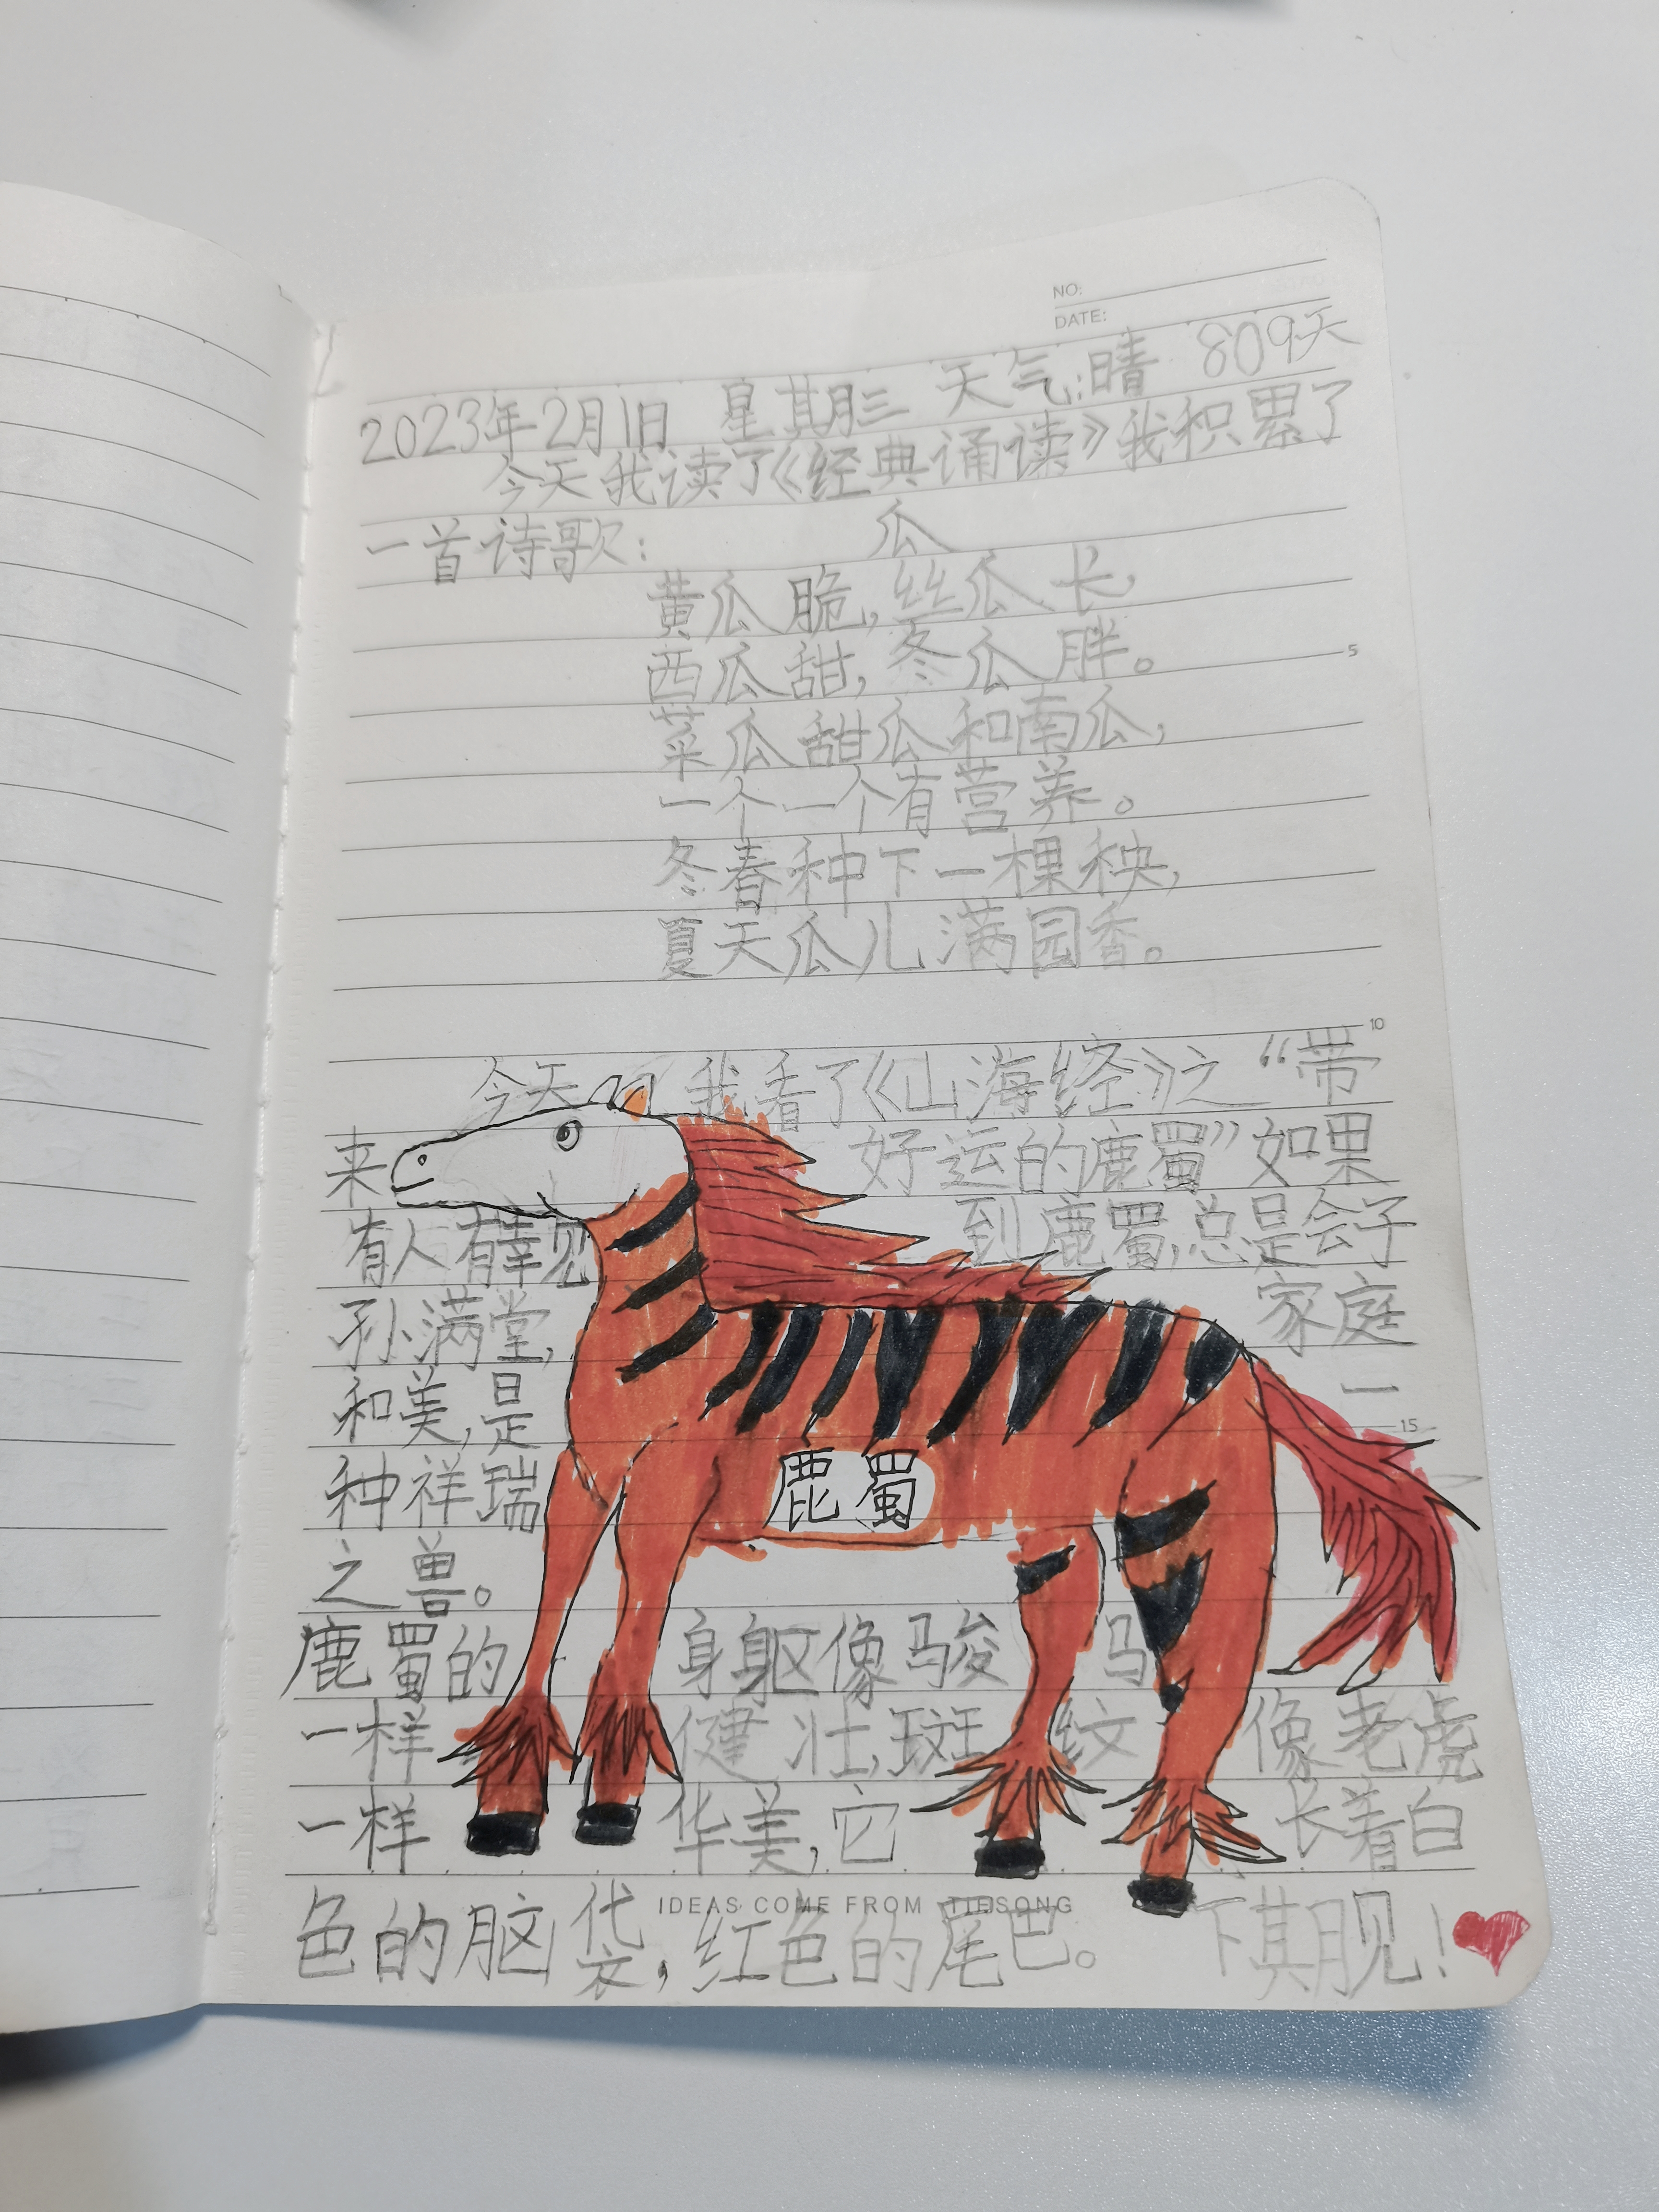 NO:
DATE:
2023年2月1日 星期三 天气:晴 809天
今天我读了《经典诵读》我积累了
一首诗歌: 瓜
黄瓜脆,丝瓜长,
西瓜甜,冬瓜胖。
5
菜瓜甜瓜和南瓜,
一个一个有营养。
冬春种下一棵秧,
夏天瓜儿满园香。
10
今天我看了《山海经》之“带
来好运的鹿蜀”如果
有人有幸见到鹿蜀,总是会子
孙满堂,家庭
和美,是一
15
种祥瑞
鹿蜀
之兽。
鹿蜀的身身躯像马骏马
一样健壮,斑纹像老虎
一样华美,它长着白
IDEAS COME FROM TIESONG
色的脑袋,红色的尾巴。 下期见!